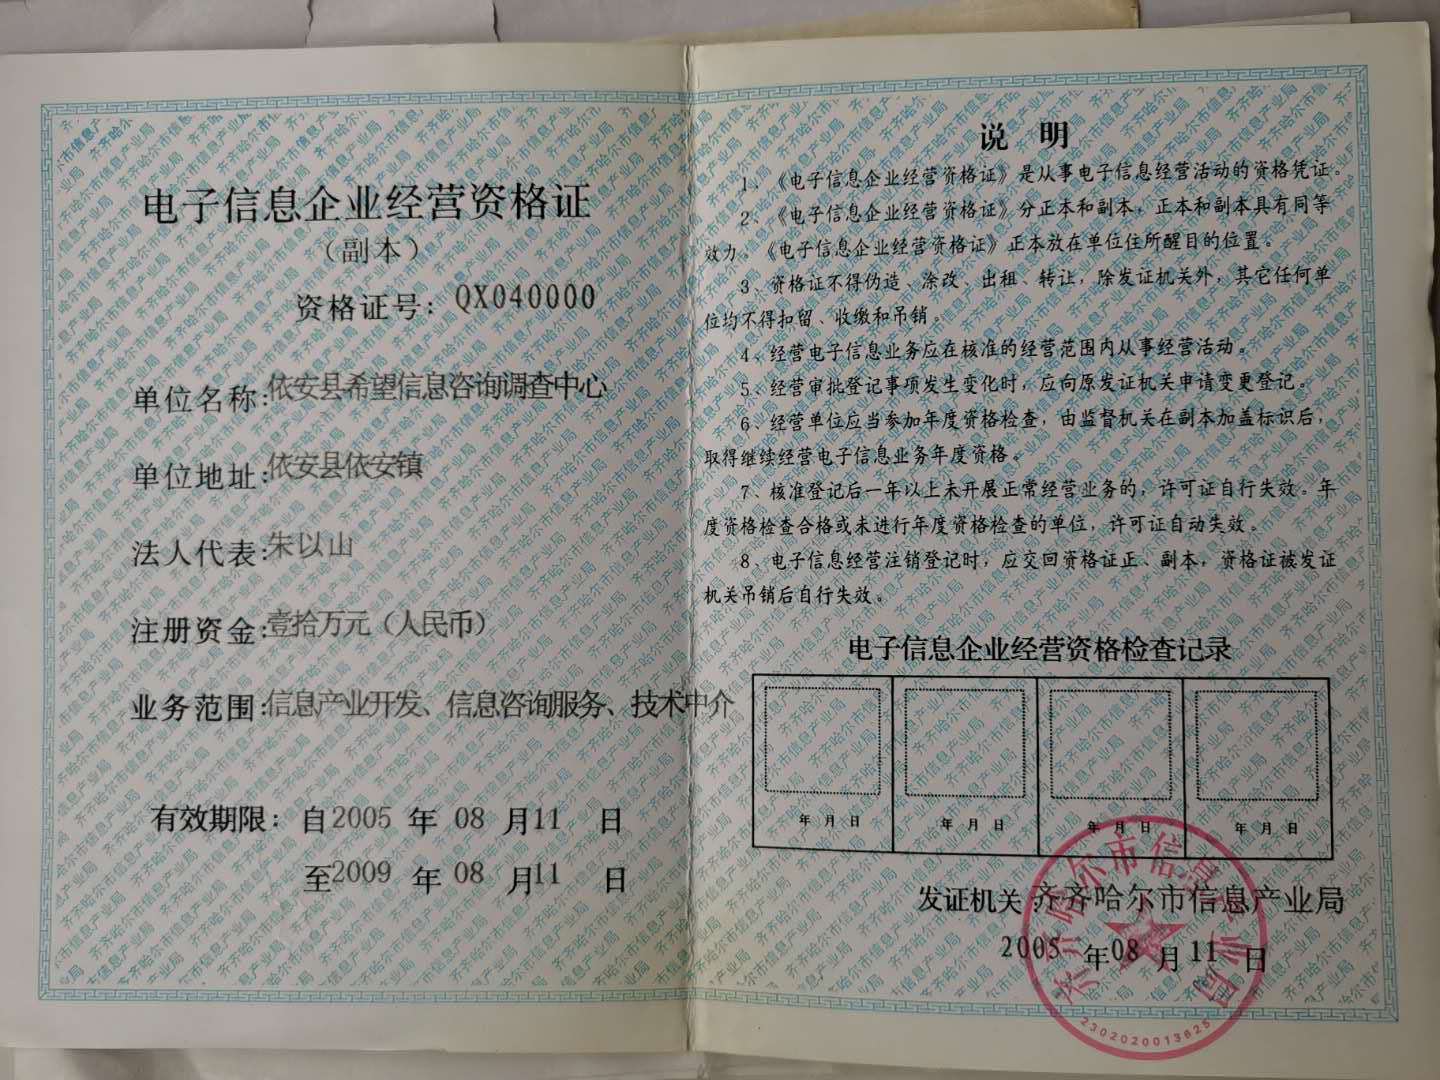 电子信息企业经营资格证
（副本）
资格证号：QX040000
单位名称:依安县希望信息咨询调查中心
单位地址:依安县依安镇
法人代表:朱以山
注册资金:壹拾万元（人民币）
业务范围:信息产业开发、信息咨询服务、技术中介
有效期限：自2005 年 08 月11 日
至2009 年 08 月11 日
说 明
1、《电子信息企业经营资格证》是从事电子信息经营活动的资格凭证。
2、《电子信息企业经营资格证》分正本和副本，正本和副本具有同等
效力。《电子信息企业经营资格证》正本放在单位住所醒目的位置。
3、资格证不得伪造、涂改、出租、转让，除发证机关外，其它任何单
位均不得扣留、收缴和吊销。
4、经营电子信息业务应在核准的经营范围内从事经营活动。
5、经营审批登记事项发生变化时，应向原发证机关申请变更登记。
6、经营单位应当参加年度资格检查，由监督机关在副本加盖标识后，
取得继续经营电子信息业务年度资格。
7、核准登记后一年以上未开展正常经营业务的，许可证自行失效。年
度资格检查合格或未进行年度资格检查的单位，许可证自动失效。
8、电子信息经营注销登记时，应交回资格证正、副本，资格证被发证
机关吊销后自行失效。
电子信息企业经营资格检查记录
年 月 日 年 月 日 年 月 日 年 月 日
发证机关 齐齐哈尔市信息产业局
2005 年08 月 11 日
齐齐哈尔市信息产业局
2302020013625